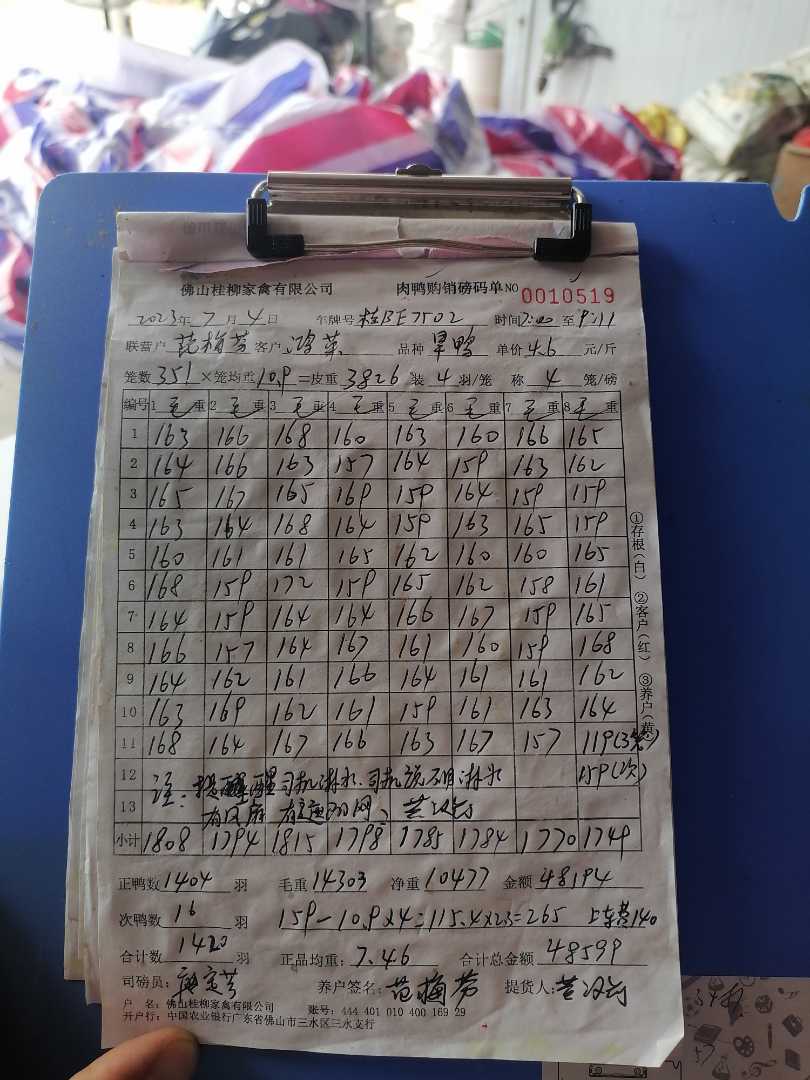 佛山桂柳家禽有限公司 肉鸭购销磅码单 NO 0010519
2023年 7月 4日 车牌号 桂BE7502 时间 7:00 至 9:11
联营户 范梅芳 客户 鸿英 品种 旱鸭 单价 4.6 元/斤
笼数 351 ×笼均重 10.9 =皮重 3826 装 4 羽/笼 称 4 笼/磅
编号 1 毛重 2 毛重 3 毛重 4 毛重 5 毛重 6 毛重 7 毛重 8 毛重
1 163 166 168 160 163 160 166 165
2 164 166 163 157 164 159 163 162
3 165 167 165 169 159 164 159 159
4 163 164 168 164 159 163 165 159
5 160 161 161 165 162 160 160 165
6 168 159 172 159 165 162 158 161
7 164 159 164 164 166 167 159 165
8 166 157 164 167 161 160 159 168
9 164 162 161 166 164 161 161 162
10 163 169 162 161 159 161 163 164
11 168 164 167 166 163 167 157 119(3笼)
12 注:提醒司机淋水.司机说不用淋水 159(次)
13 有风扇 有遮阳网、
小计 1808 1794 1815 1798 1785 1784 1770 1749
正鸭数 1404 羽 毛重 14303 净重 10477 金额 48194
次鸭数 16 羽 159-10.9×4=115.4×2.3=265 上车费140
合计数 1420 羽 正品均重: 7.46 合计总金额 48599
司磅员: 养户签名: 范梅芳 提货人:
户 名: 佛山桂柳家禽有限公司 账号: 444 401 010 400 169 29
开户行: 中国农业银行广东省佛山市三水区三水支行
①存根(白) ②客户(红) ③养户(黄)